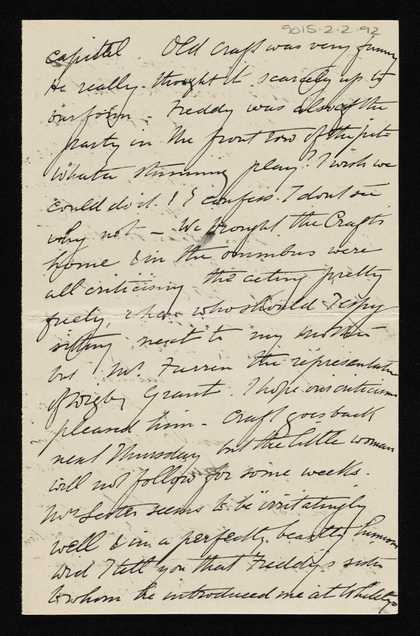 9015-2-2-92
capital. Old Craft was very funny
He really thought it scarcely up to
our form. Freddy was also of the
party in the front row of the pit.
What a stunning play! I wish we
could do it. I confess I dont see
why not — We brought the Crafts
home & in the omnibus were
all criticising the acting pretty
freely, when who should I espy
sitting next to my mother
but Mr Farren the representative
of Digby Grant. I hope our criticisms
pleased him. Craft goes back
next Thursday but the little woman
will not follow for some weeks.
Mrs Lester seems to be irritatingly
well & in a perfectly beastly humour
Did I tell you that Freddy's sister
to whom he introduced me at